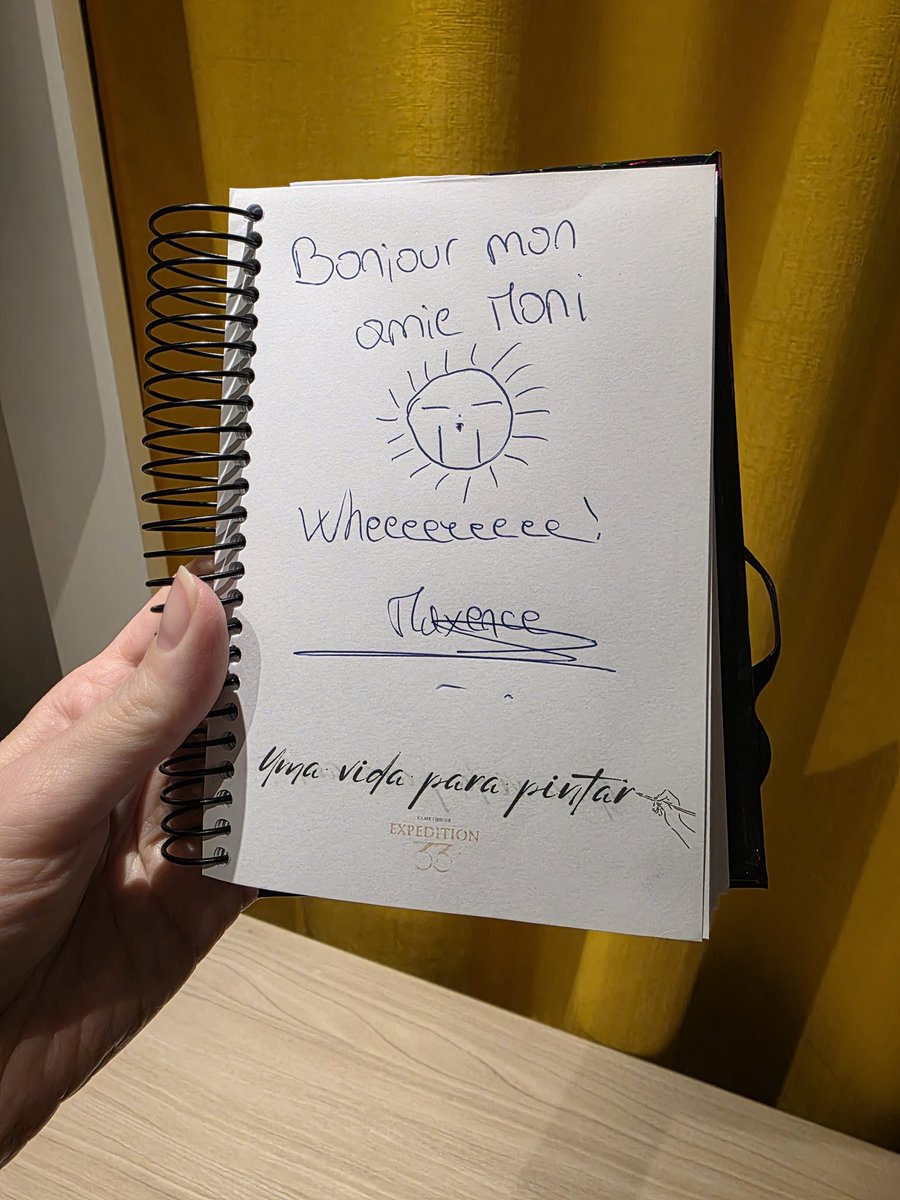 Bonjour mon
amie Moni
Wheeeeeeeee!
Maxence
Uma vida para pintar
CLAIR OBSCUR
EXPEDITION
33